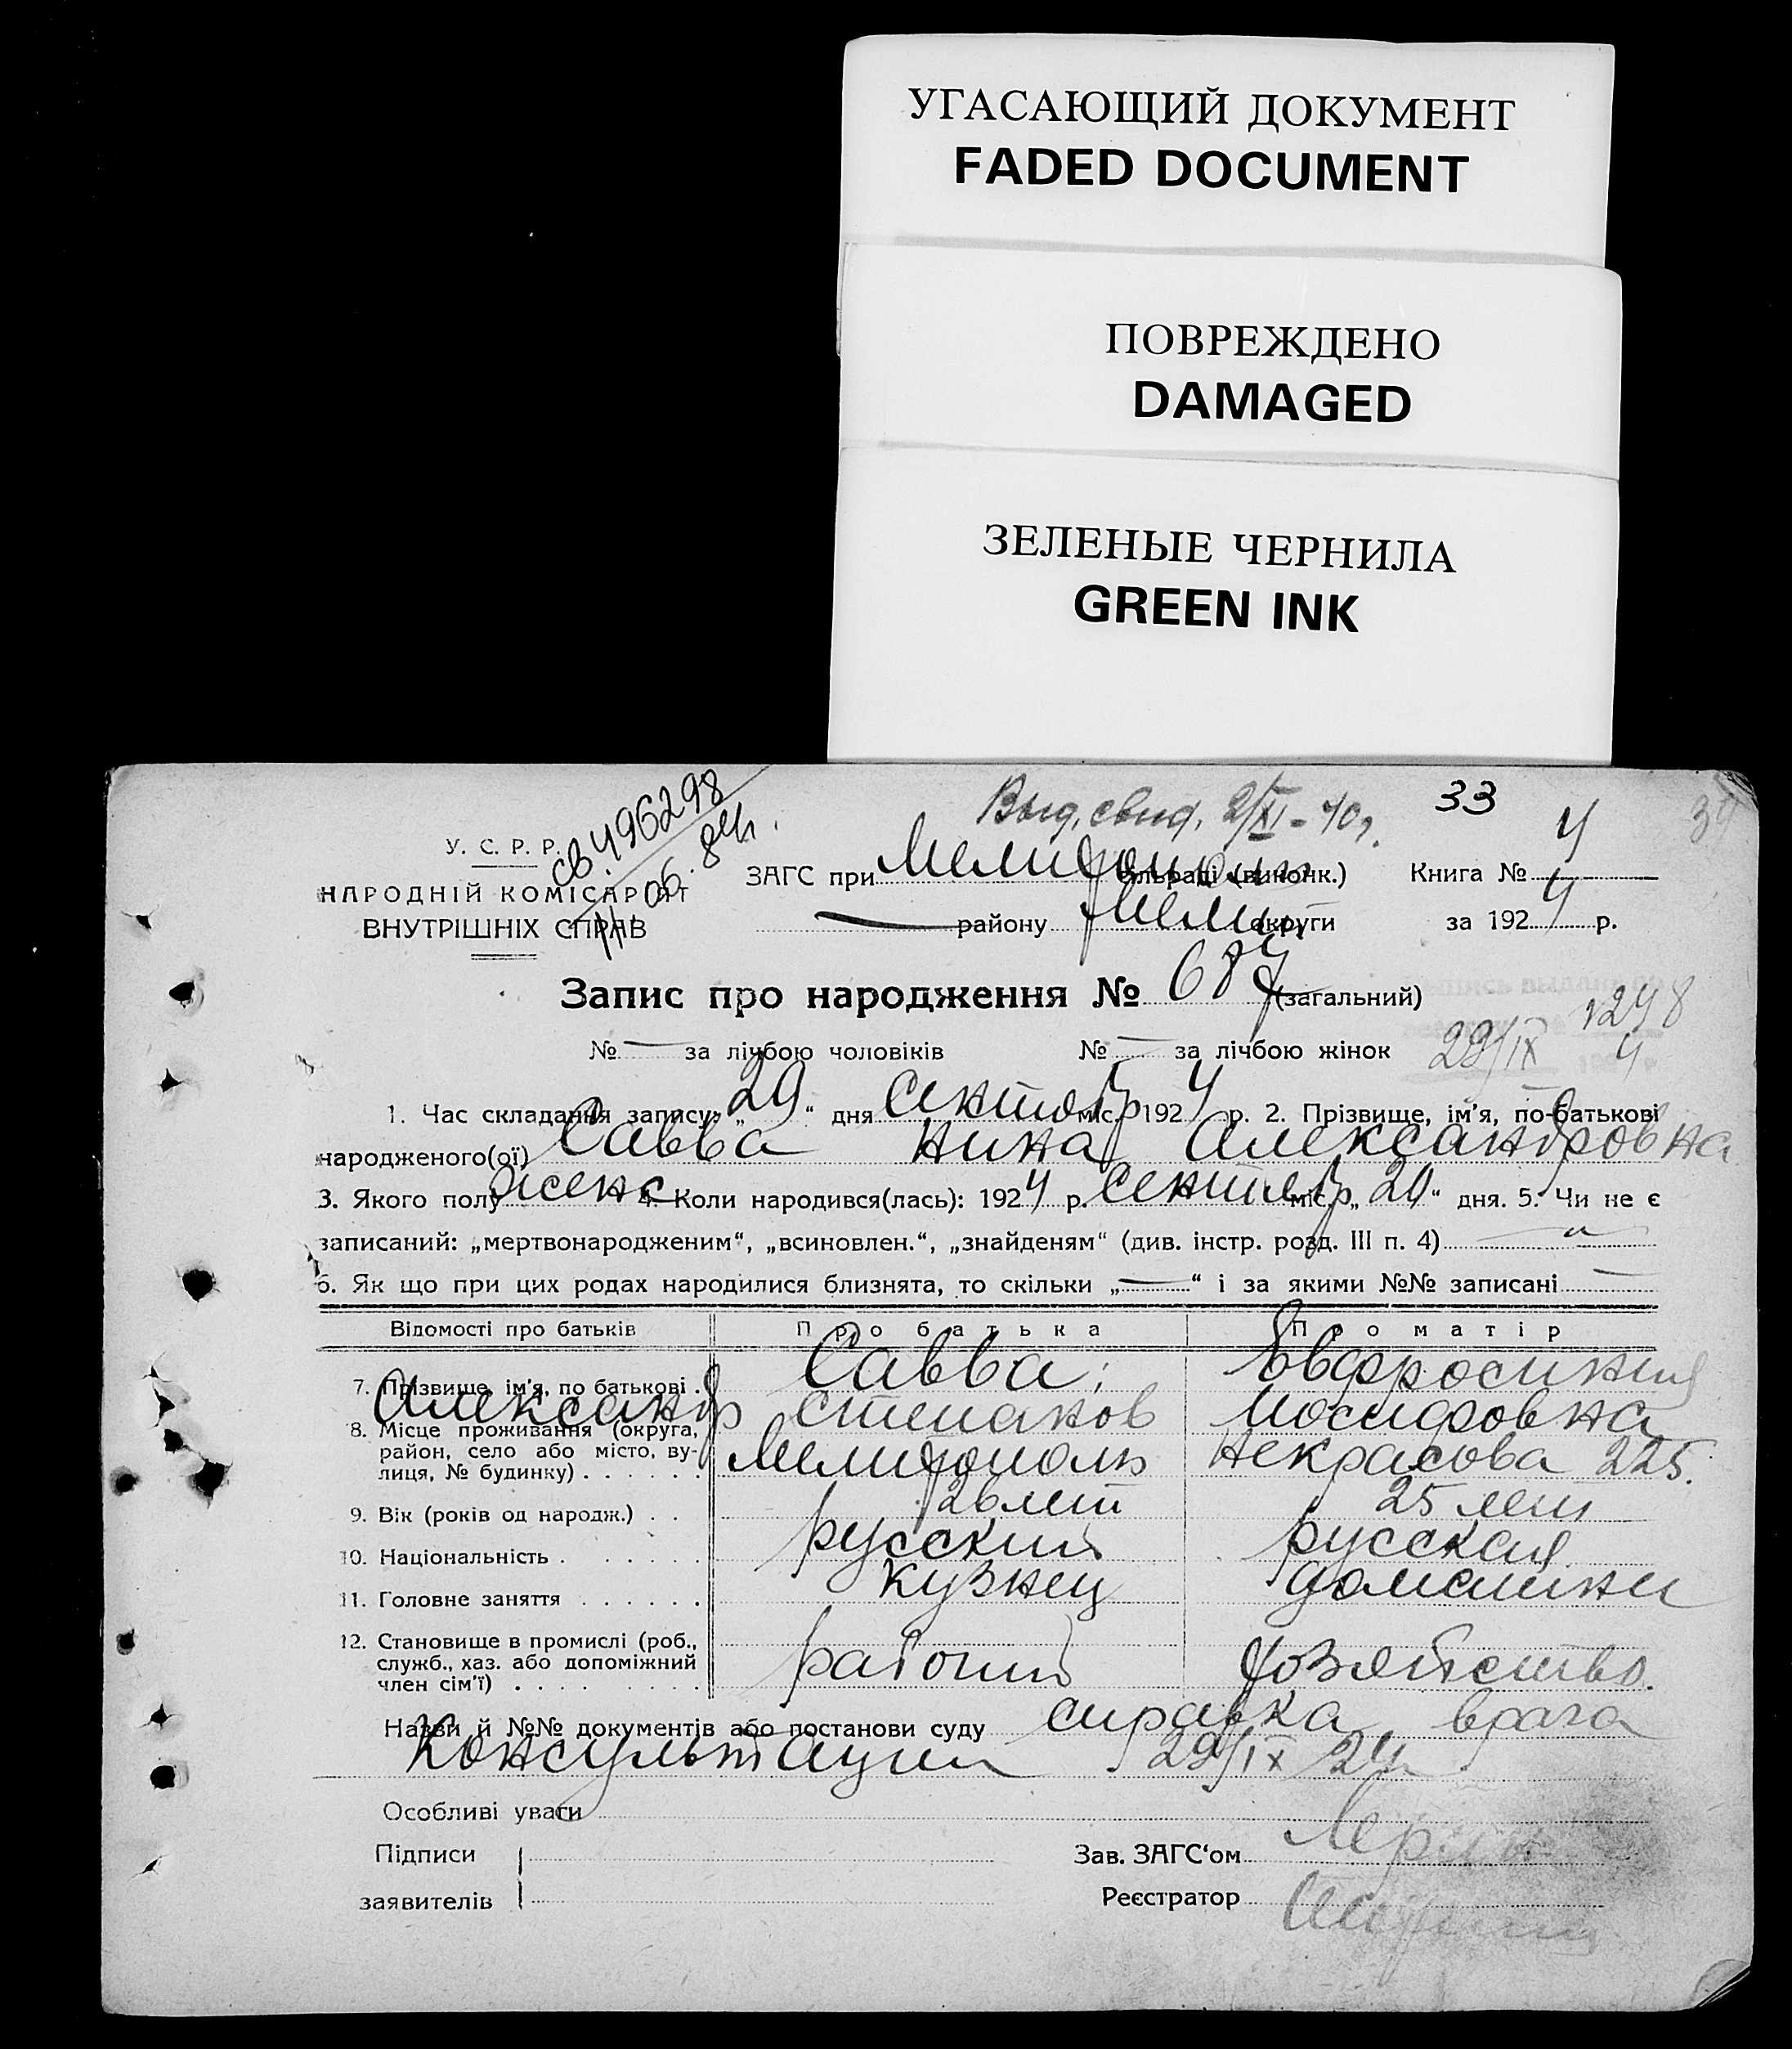 УГАСАЮЩИЙ ДОКУМЕНТ
FADED DOCUMENT
ПОВРЕЖДЕНО
DAMAGED
ЗЕЛЕНЫЕ ЧЕРНИЛА
GREEN INK
Выд. свид. 2/XI-40г.
33
39
св. 496298
06.84г.
У. С. Р. Р.
НАРОДНІЙ КОМІСАРІЯТ
ВНУТРІШНІХ СПРАВ
ЗАГС при сільраді (виконк.) Книга № 4
— району Мелит. округи за 1924 р.
Запис про народження № 687 (загальний)
№ — за лічбою чоловіків № — за лічбою жінок
29/IX
1. Час складання запису: „29“ дня Сентябр міс. 1924 р. 2. Прізвище, ім'я, по-батькові
народженого(ої) Савва Нина Александровна
3. Якого полу женс 4. Коли народився(лась): 1924 р. Сентябр міс. „20“ дня. 5. Чи не є
записаний: „мертвонародженим“, „всиновлен.“, „знайденям“ (див. інстр. розд. III п. 4)
6. Як що при цих родах народилися близнята, то скільки „—“ і за якими №№ записані —
Відомості про батьків Про батька Про матір
7. Прізвище, ім'я, по батькові . Савва Евфросиния
Александр Степанов Иосифовна
8. Місце проживання (округа, район, село або місто, вулиця, № будинку) . . . . . . Мелитополь Некрасова 225.
9. Вік (років од народж.) . . 26 лет 25 лет
10. Національність . . . . . . русский русская
11. Головне заняття . . . . . . кузнец домашнее
12. Становище в промислі (роб., служб., хаз. або допоміжний член сім'ї) . . . . . . рабочий хозяйство.
Назви й №№ документів або постанови суду справка врача
Консультации 29/IX 24
Особливі уваги
Підписи
заявителів
Зав. ЗАГС'ом
Реєстратор